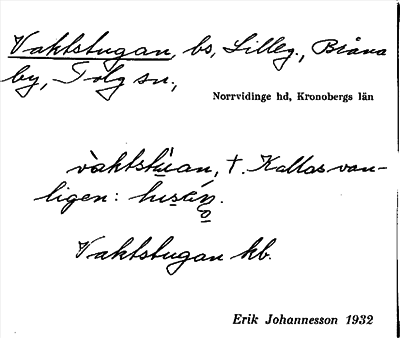 Vaktstugan, bs, Lilleg., Bråna
by, Tolg sn.,
Norrvidinge hd, Kronobergs län
vàktstùan, †. Kallas van-
ligen:
Vaktstugan kb.
Erik Johannesson 1932